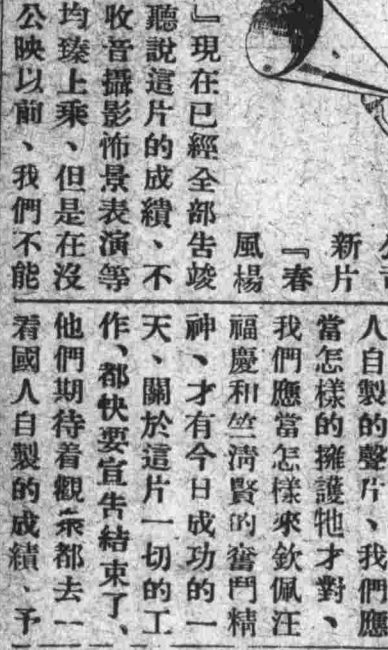 新片
『春
風楊
』現在已經全部告竣
聽說這片的成績、不
收音攝影怖景表演等
均臻上乘、但是在沒
公映以前、我們不能
人自製的聲片、我們應
當怎樣的擁護牠才對、
我們應當怎樣來欽佩汪
福慶和竺淸賢的奮鬥精
神、才有今日成功的一
天、關於這片一切的工
作、都快要宣告結束了、
他們期待着觀衆都去一
看國人自製的成績、予